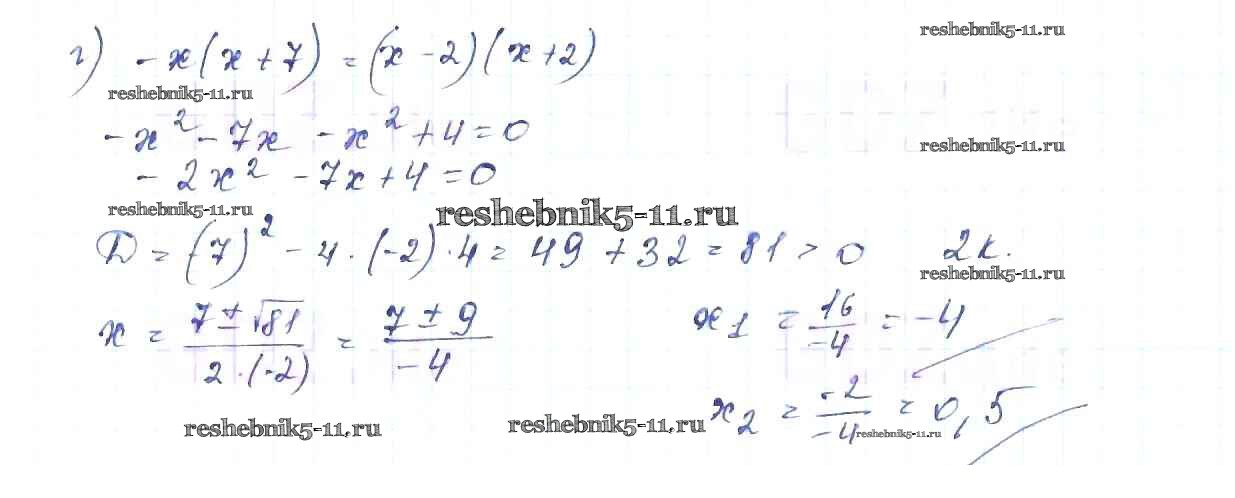 г) -x(x+7) = (x-2)(x+2)
reshebnik5-11.ru
reshebnik5-11.ru
-x² - 7x - x² + 4 = 0
reshebnik5-11.ru
-2x² - 7x + 4 = 0
reshebnik5-11.ru
reshebnik5-11.ru
D = (7)² - 4·(-2)·4 = 49 + 32 = 81 > 0 2к.
reshebnik5-11.ru
x = (7 ± √81)/(2·(-2)) = (7 ± 9)/(-4)
x₁ = 16/(-4) = -4
x₂ = -2/-4 = 0,5
reshebnik5-11.ru
reshebnik5-11.ru
reshebnik5-11.ru